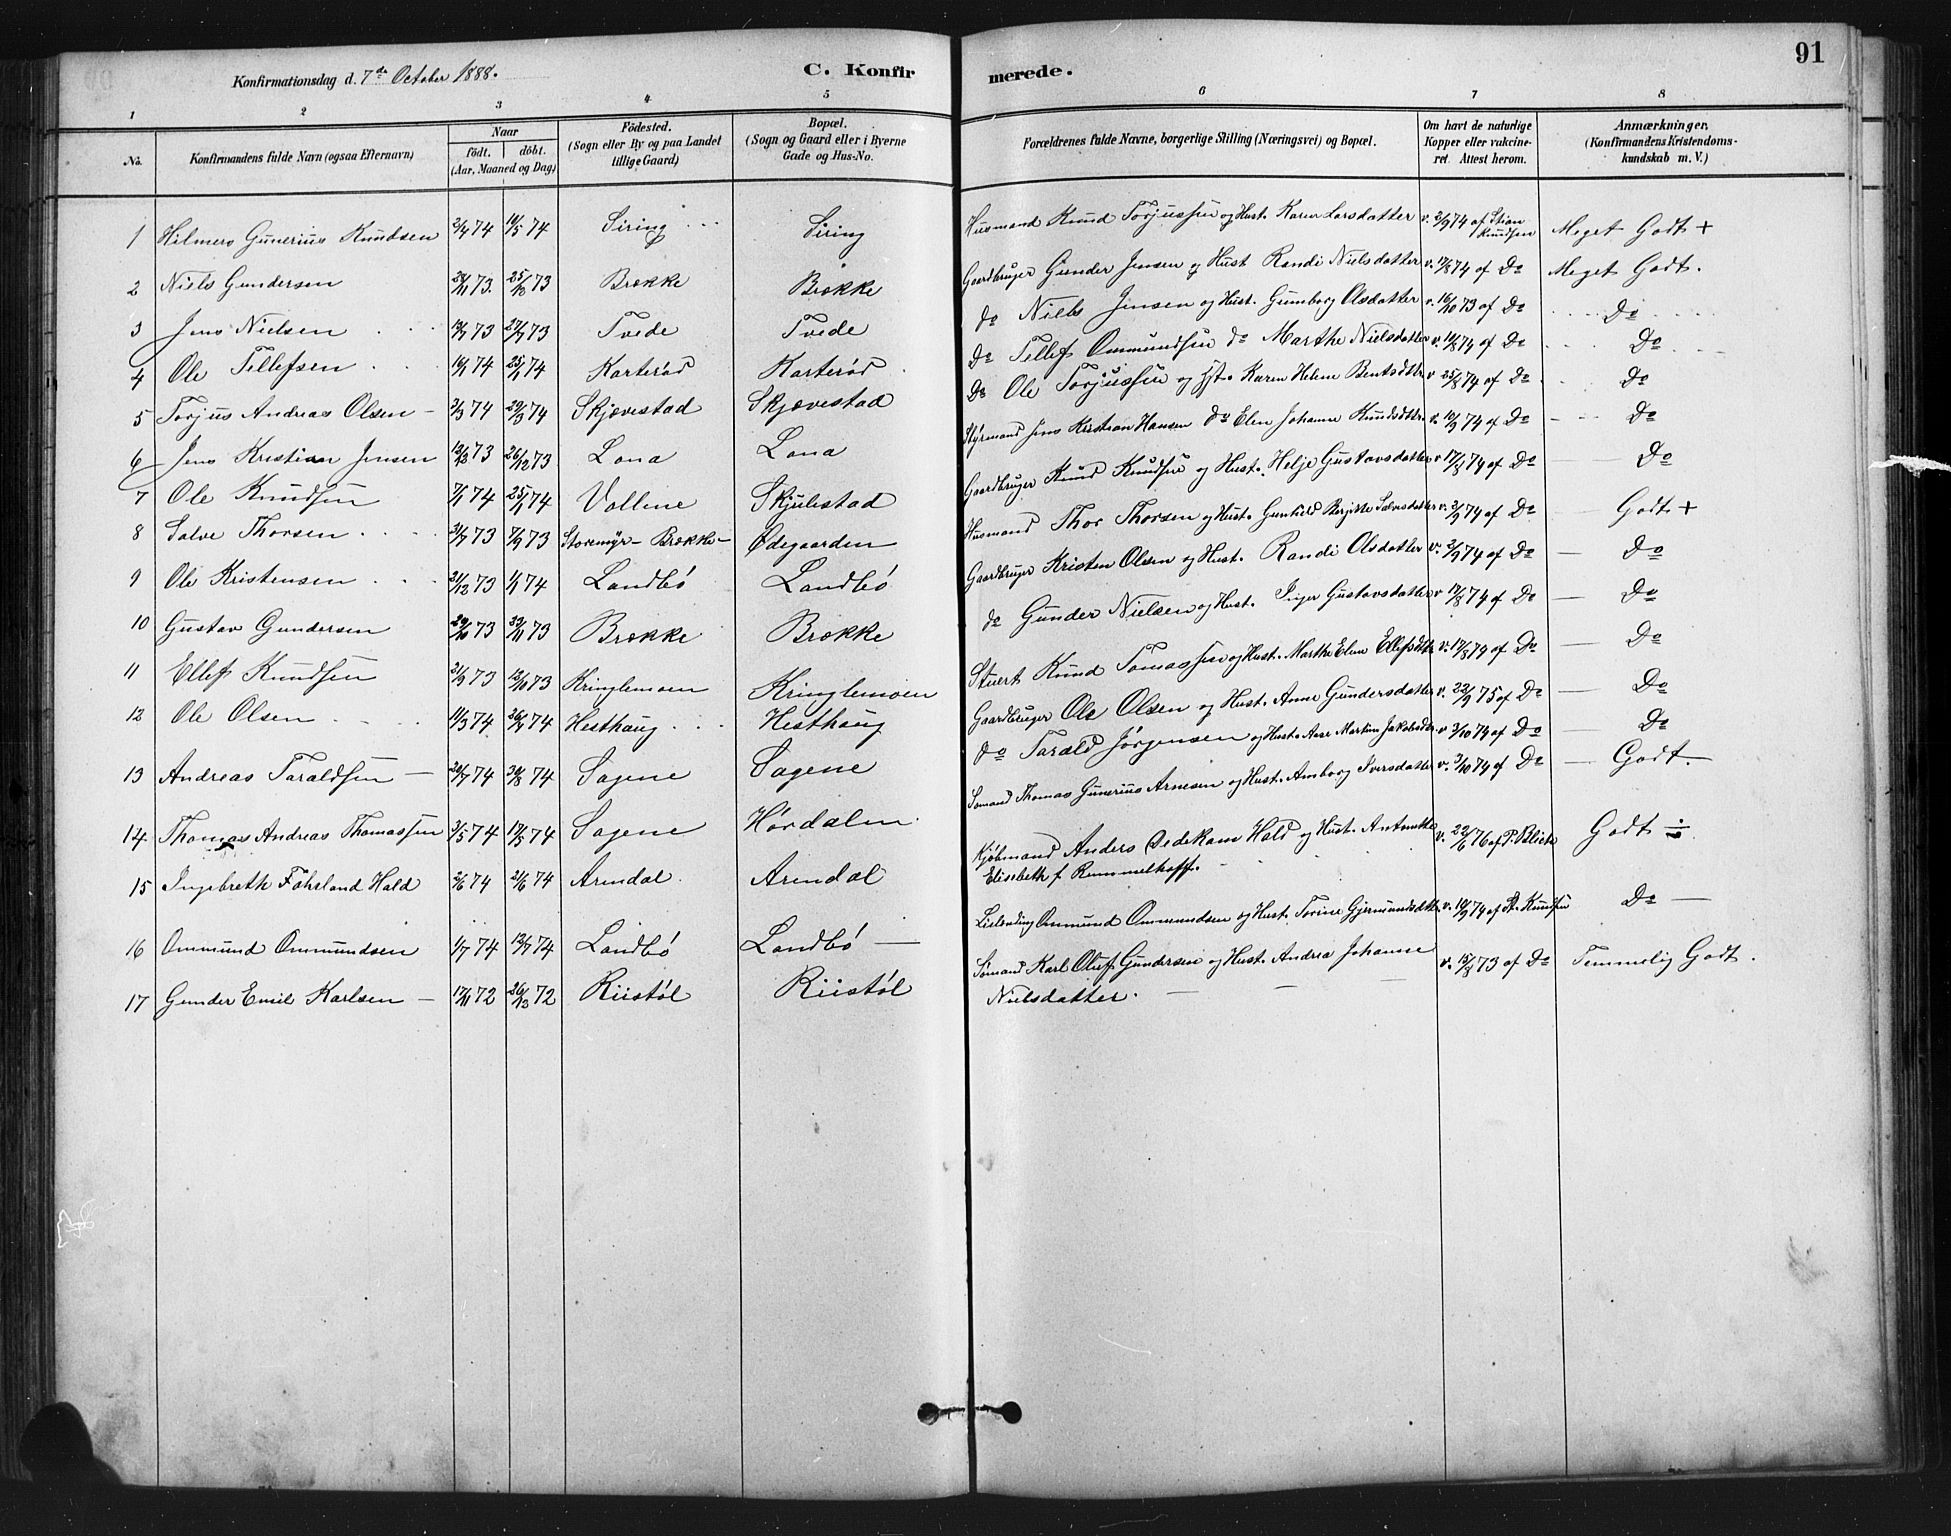 91
Konfirmationsdag d. 7de October 1888.
C. Konfirmerede.
1 2 3 4 5 6 7 8
No. Konfirmandens fulde Navn (ogsaa Efternavn) Naar födt. döbt. (Aar, Maaned og Dag) Födested. (Sogn eller By og paa Landet tillige Gaard) Bopæl. (Sogn og Gaard eller i Byerne Gade og Hus-No. Forældrenes fulde Navne, borgerlige Stilling (Næringsvei) og Bopæl. Om havt de naturlige Kopper eller vakcineret. Attest herom. Anmærkninger. (Konfirmandens Kristendomskundskab m. V.)
1 Hilmero Gunerius Knudsen 74 /5 74 Siring Siring Husmand Knud Torjussen og Hust. Karen Larsdatter v. 2/9 74 af Stian Knudsen Meget Godt +
2 Niels Gundersen 28/11 73. 25/12 73 Brekke Brekke Gaardbruger Gunder Jensen og Hust Randi Nielsdatter v. 17/8 74 af Do Meget Godt.
3 Jens Nielsen 73 73 Tvede Tvede do Niels Jensen og Hust. Gumborg Olsdatter v. 16/10 73 af Do Do
4 Ole Tellefsen 74 25/1 74 Karterød Karterød Do Tellef Ommundsen do Marthe Nielsdatter v. 74 af Do Do
5 Torjus Andreas Olsen 2/3 74 29/3 74 Skjævestad Skjævestad Do Ole Torjussen og Hst. Karen Helene Bentsdttr v 74 af Do Do
6 Jens Kristian Jensen 73 26/12 73 Lona Lona Styrmand Jens Kristian Hansen do Elen Johanne Knudsdttr v. 74 af Do Do
7 Ole Knudsen 7/1 74 25/1 74 Vollene Skjulestad Gaardbruger Knud Knudsen og Hust. Helje Gustavsdatter v 17/8 74 af Do Do
8 Salve Thorsen 73 73 Storemyr - Brekke Ødegaarden Husmand Thor Thorsen og Hust. Gunhild Birgitte Salvesdatter v. 2/9 74 af Do Godt +
9 Ole Kristensen 21/12 73 1/1 74 Landbö Landbö Gaardbruger Kristen Olsen og Hust. Randi Olsdatter v. 2/9 74 af Do Do
10 Gustav Gundersen 29/10 73 30/11 73 Brekke Brekke do Gunder Nielsen og Hust. Inger Gustavsdatter v 17/8 74 af Do Do
11 Ellef Knudsen 2/9 73 12/10 73 Kringlemoen Kringlemoen Stuert Knud Tomassen og Hust. Marthe Elene Ellefsdttr v. 17/8 74 af Do Do
12 Ole Olsen 11/3 74 26/4 74 Hesthaug Hesthaug Gaardbruger Ole Olsen og Hust. Anne Gundersdatter v. 22/9 75 af Do Do
13 Andreas Taraldsen 20/7 74 30/8 74 Sagene Sagene do Tarald Jörgensen og Hust. Aase Martine Jakobsdtr v 3/10 74 af Do Do
14 Thomas Andreas Thomassen 3/5 74 17/5 74 Sagene Hördalen Sømand Thomas Gunerius Arnesen og Hust. Amborg Iversdatter v. 3/10 74 af Do Godt.
15 Ingebreth Föhrland Hald 2/6 74 21/6 74 Arendal Arendal Kjöbmand Anders Dedekam Hald og Hust. Antonette Elisebeth f Rummelhoff. v. 22/6 76 af P. Blich Godt ÷
16 Ommund Ommundsen 1/7 74 12/7 74 Landbö Landbö Leilending Ommund Ommundsen og Hust. Torine Gjermundsdttr v. 10/9 74 af St. Knudsen Do
17 Gunder Emil Karlsen 17/11 72 26/12 72 Riistöl Riistöl Sømand Karl Oluf Gundersen og Hust. Andrea Johanne Nielsdatter. v. 15/8 73 af Do Temmelig Godt.